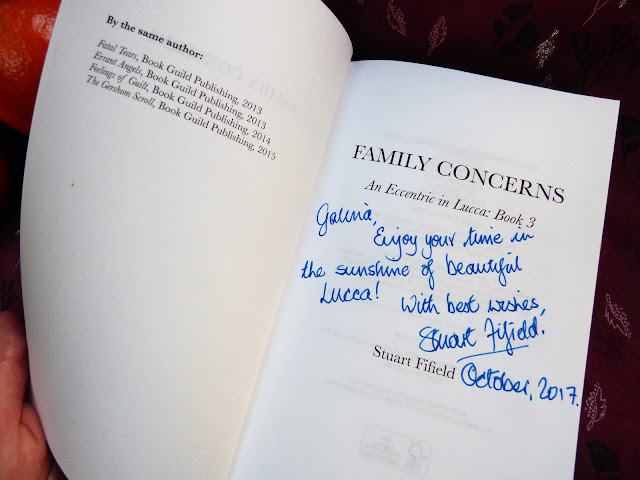 By the same author:
Fatal Tears, Book Guild Publishing, 2013
Errant Angels, Book Guild Publishing, 2013
Feelings of Guilt, Book Guild Publishing, 2014
The Gersham Scroll, Book Guild Publishing, 2015
FAMILY CONCERNS
An Eccentric in Lucca: Book 3
Galina,
Enjoy your time in
the sunshine of beautiful
Lucca! With best wishes,
Stuart Fifield.
Stuart Fifield
October, 2017.